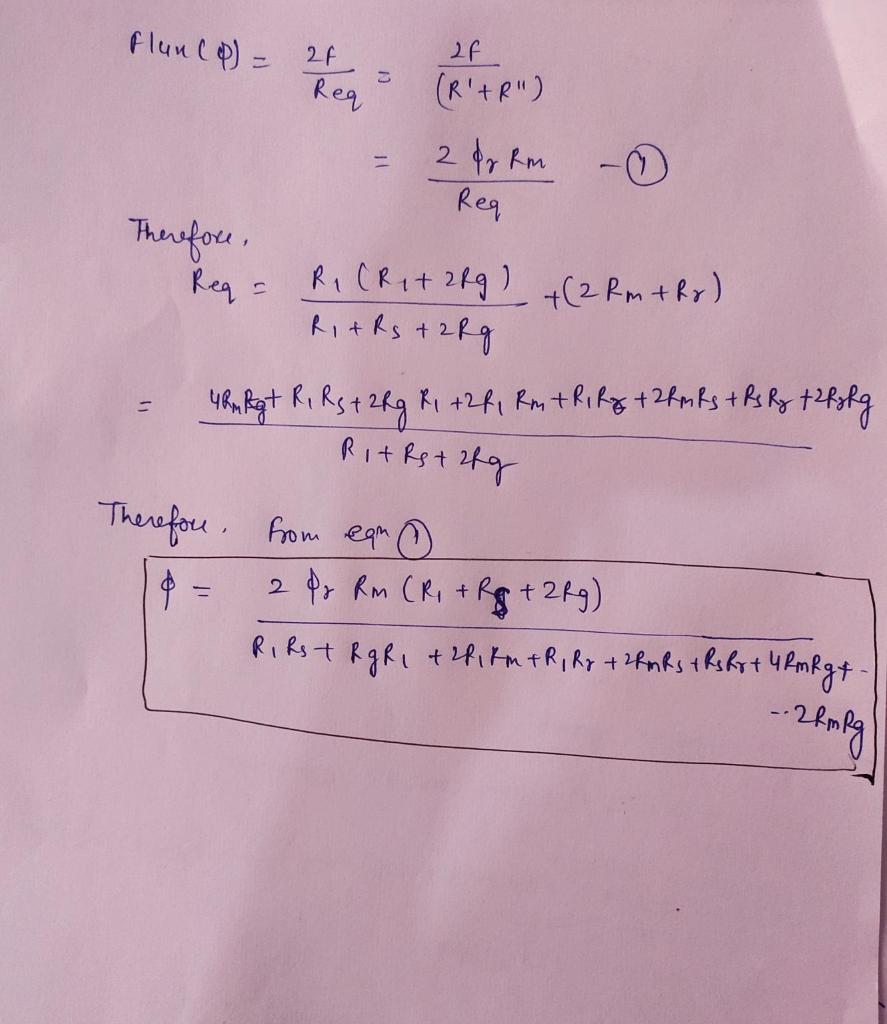 Flux (φ) = 2F / Req = 2F / (R'+R")
= 2 φr Rm / Req - ①
Therefore,
Req = R1 (R1+ 2Rg) / R1 + Rs + 2Rg +(2 Rm + Rr)
= 4RmRg+ R1 Rs+ 2Rg R1 +2R1 Rm + R1Rr + 2RmRs + Rs Rr +2RrRg / R1+ Rs+ 2Rg
Therefore, from eqn ①
φ = 2 φr Rm (R1 + Rs + 2Rg) / R1 Rs + RgR1 + 2R1Rm + R1Rr + 2RmRs + RsRr + 4RmRg + -
-- 2RmRg